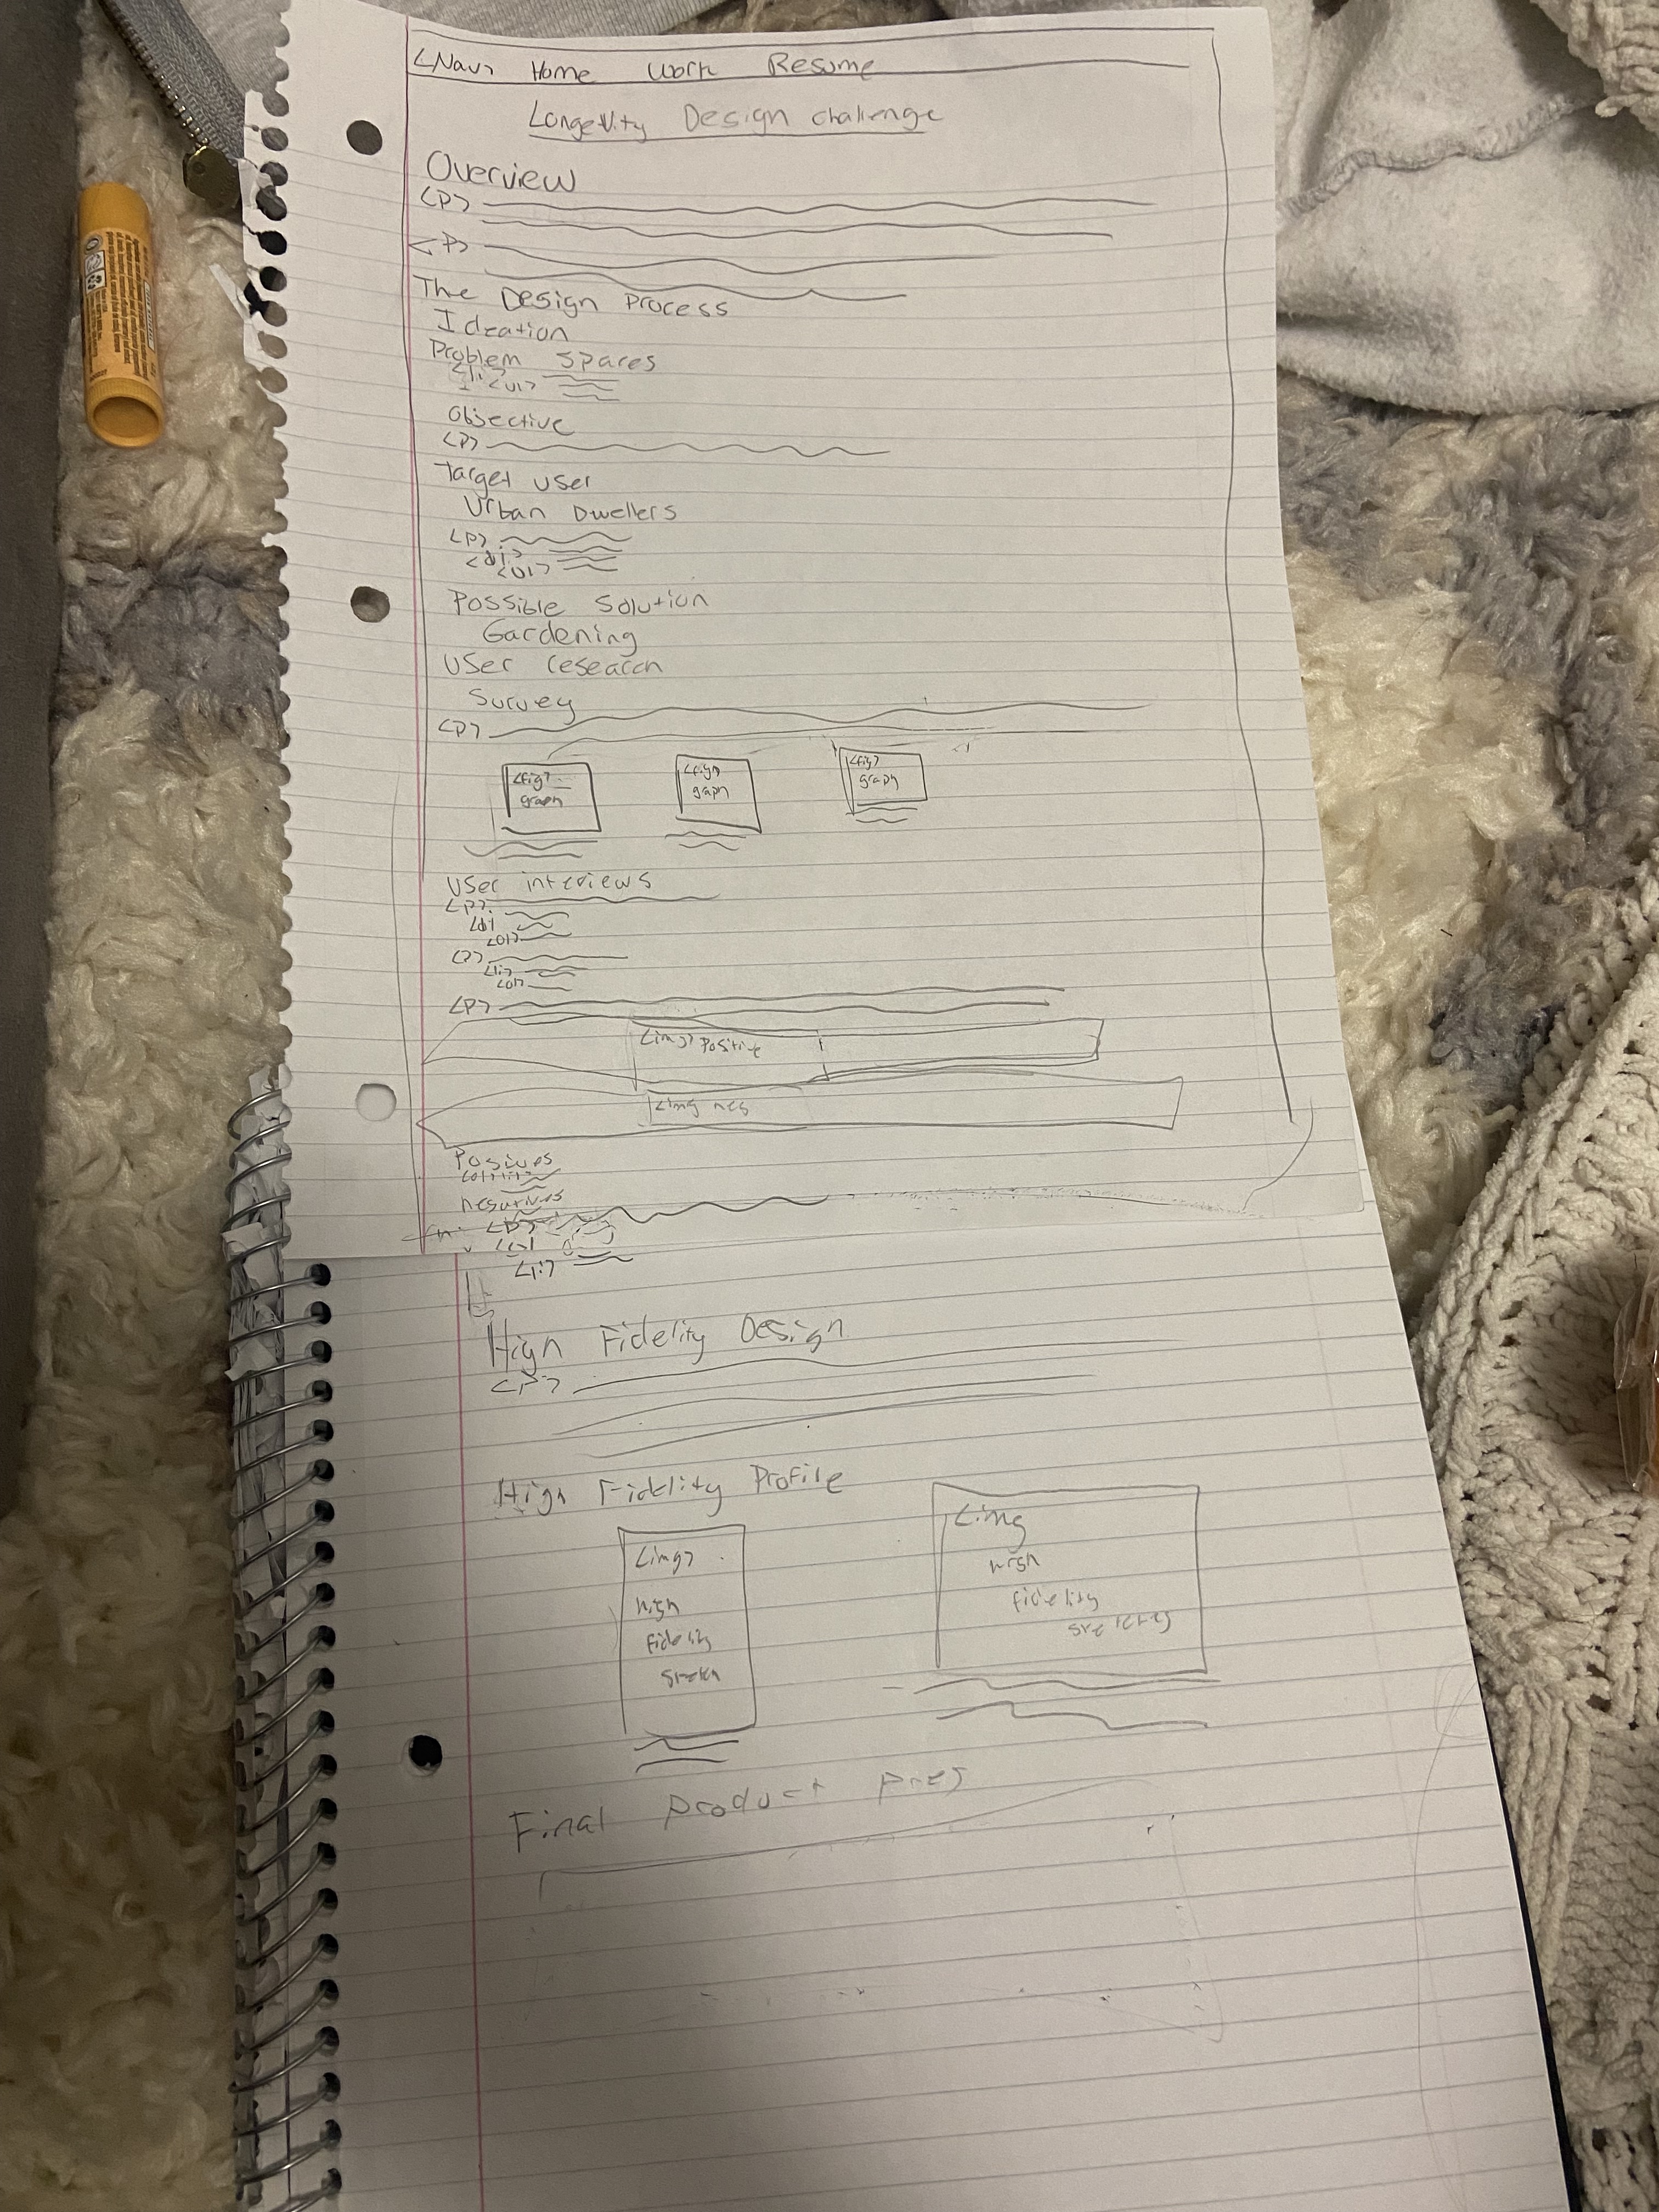 <Nav> Home Work Resume
Longevity Design challenge
Overview
<P>
<P>
The Design Process
Ideation
Problem Spares
<li>
<ul>
Objective
<P>
Target user
Urban Dwellers
<P>
<ul>
Possible Solution
Gardening
User research
Survey
<P>
<fig> <fig> <fig>
graph graph graph
User interviews
<P>
<ol>
<P>
<li>
<ol>
<P>
<img> Positive
<img neg
negatives
<P>
<li>
High Fidelity Design
<P>
High Fidelity Profile
<img> <img
high high
fidelity fidelity
Final Product